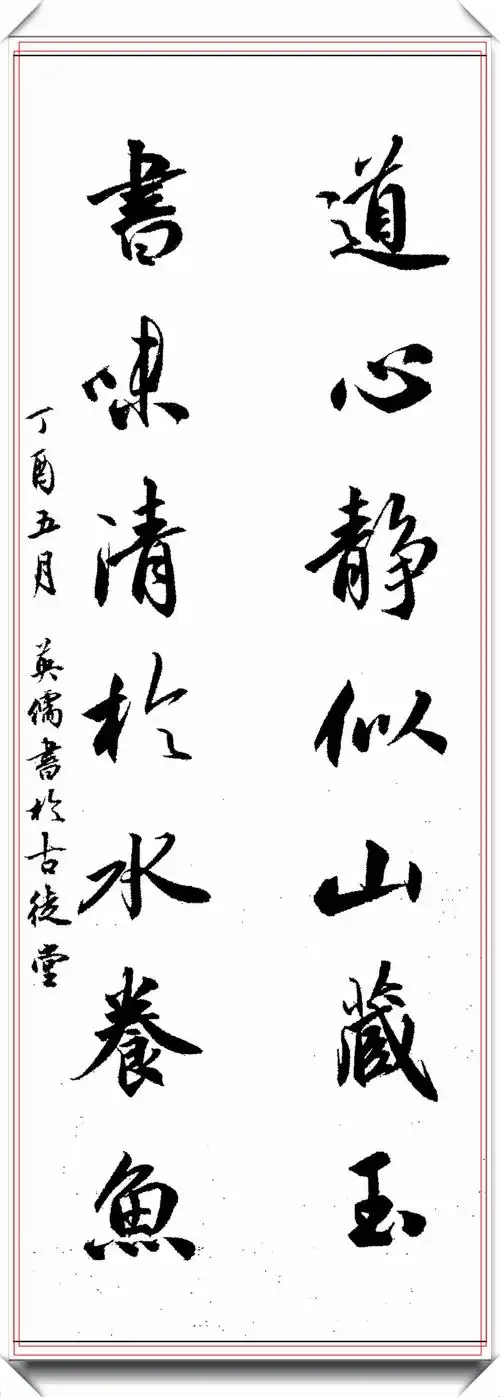 道心静似山藏玉
書味清於水養魚
丁酉五月 英儒書於古徒堂